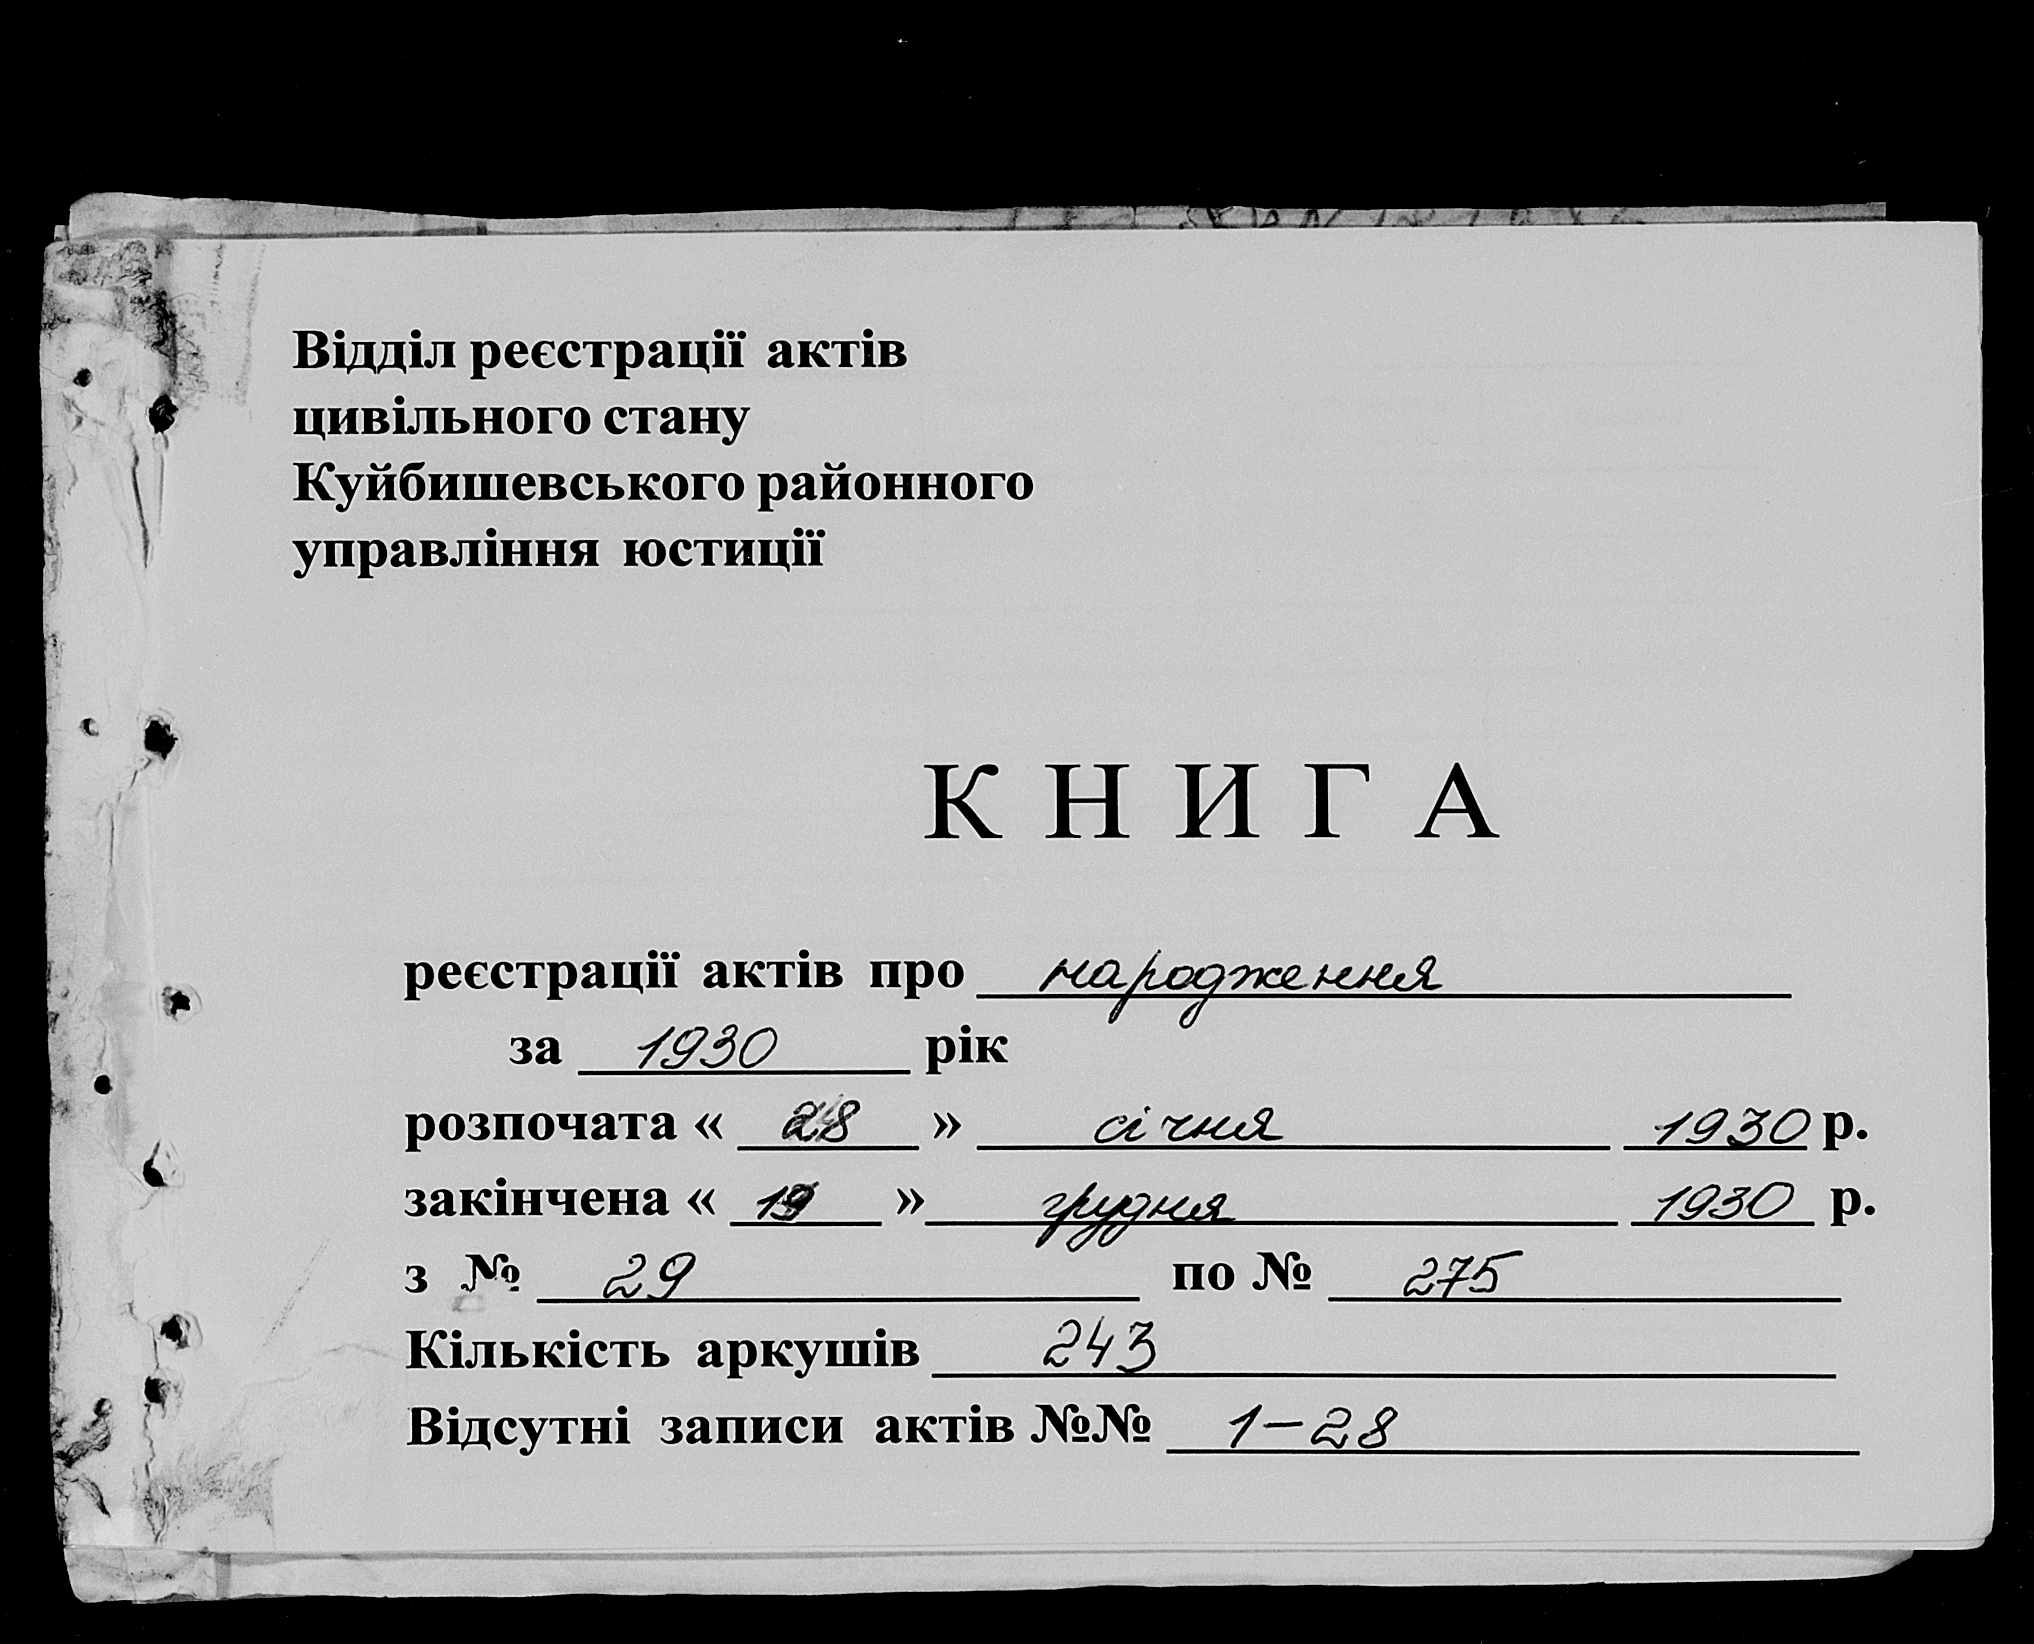 Відділ реєстрації актів
цивільного стану
Куйбишевського районного
управління юстиції
КНИГА
реєстрації актів про народження
за 1930 рік
розпочата « 28 » січня 1930 р.
закінчена « 19 » грудня 1930 р.
з № 29 по № 275
Кількість аркушів 243
Відсутні записи актів №№ 1-28